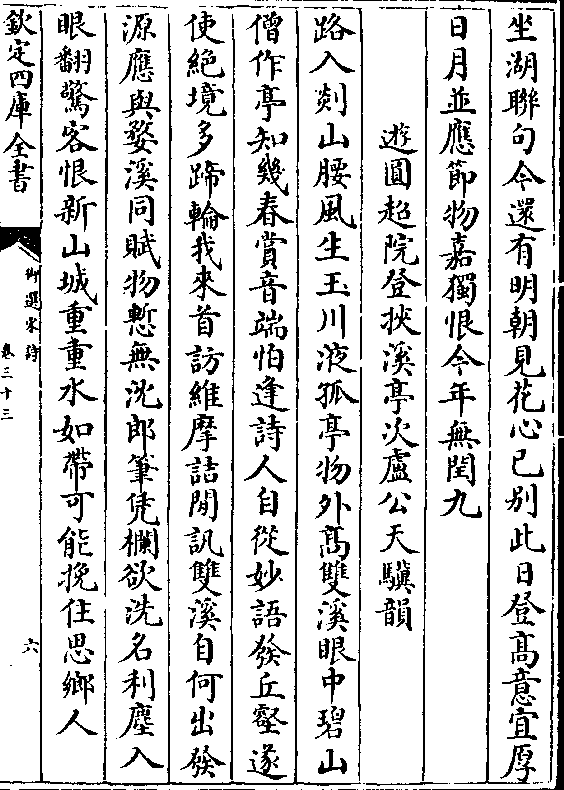 坐湖聯句今還有明朝見花心已別此日登高意宜厚
日月並應節物嘉獨恨今年無閏九
遊圓超院登挾溪亭次盧公天驥韻
路入剡山腰風生玉川液孤亭物外高雙溪眼中碧山
僧作亭知幾春賞音端怕逢詩人自從妙語發丘壑遂
使絕境多蹄輪我來首訪維摩詰閒訊雙溪自何出發
源應與婺溪同賦物慙無沈郎筆凭欄欲洗名利塵入
眼翻驚客恨新山城重重水如帶可能挽住思鄉人
欽定四庫全書
御選宋詩
卷三十三
六